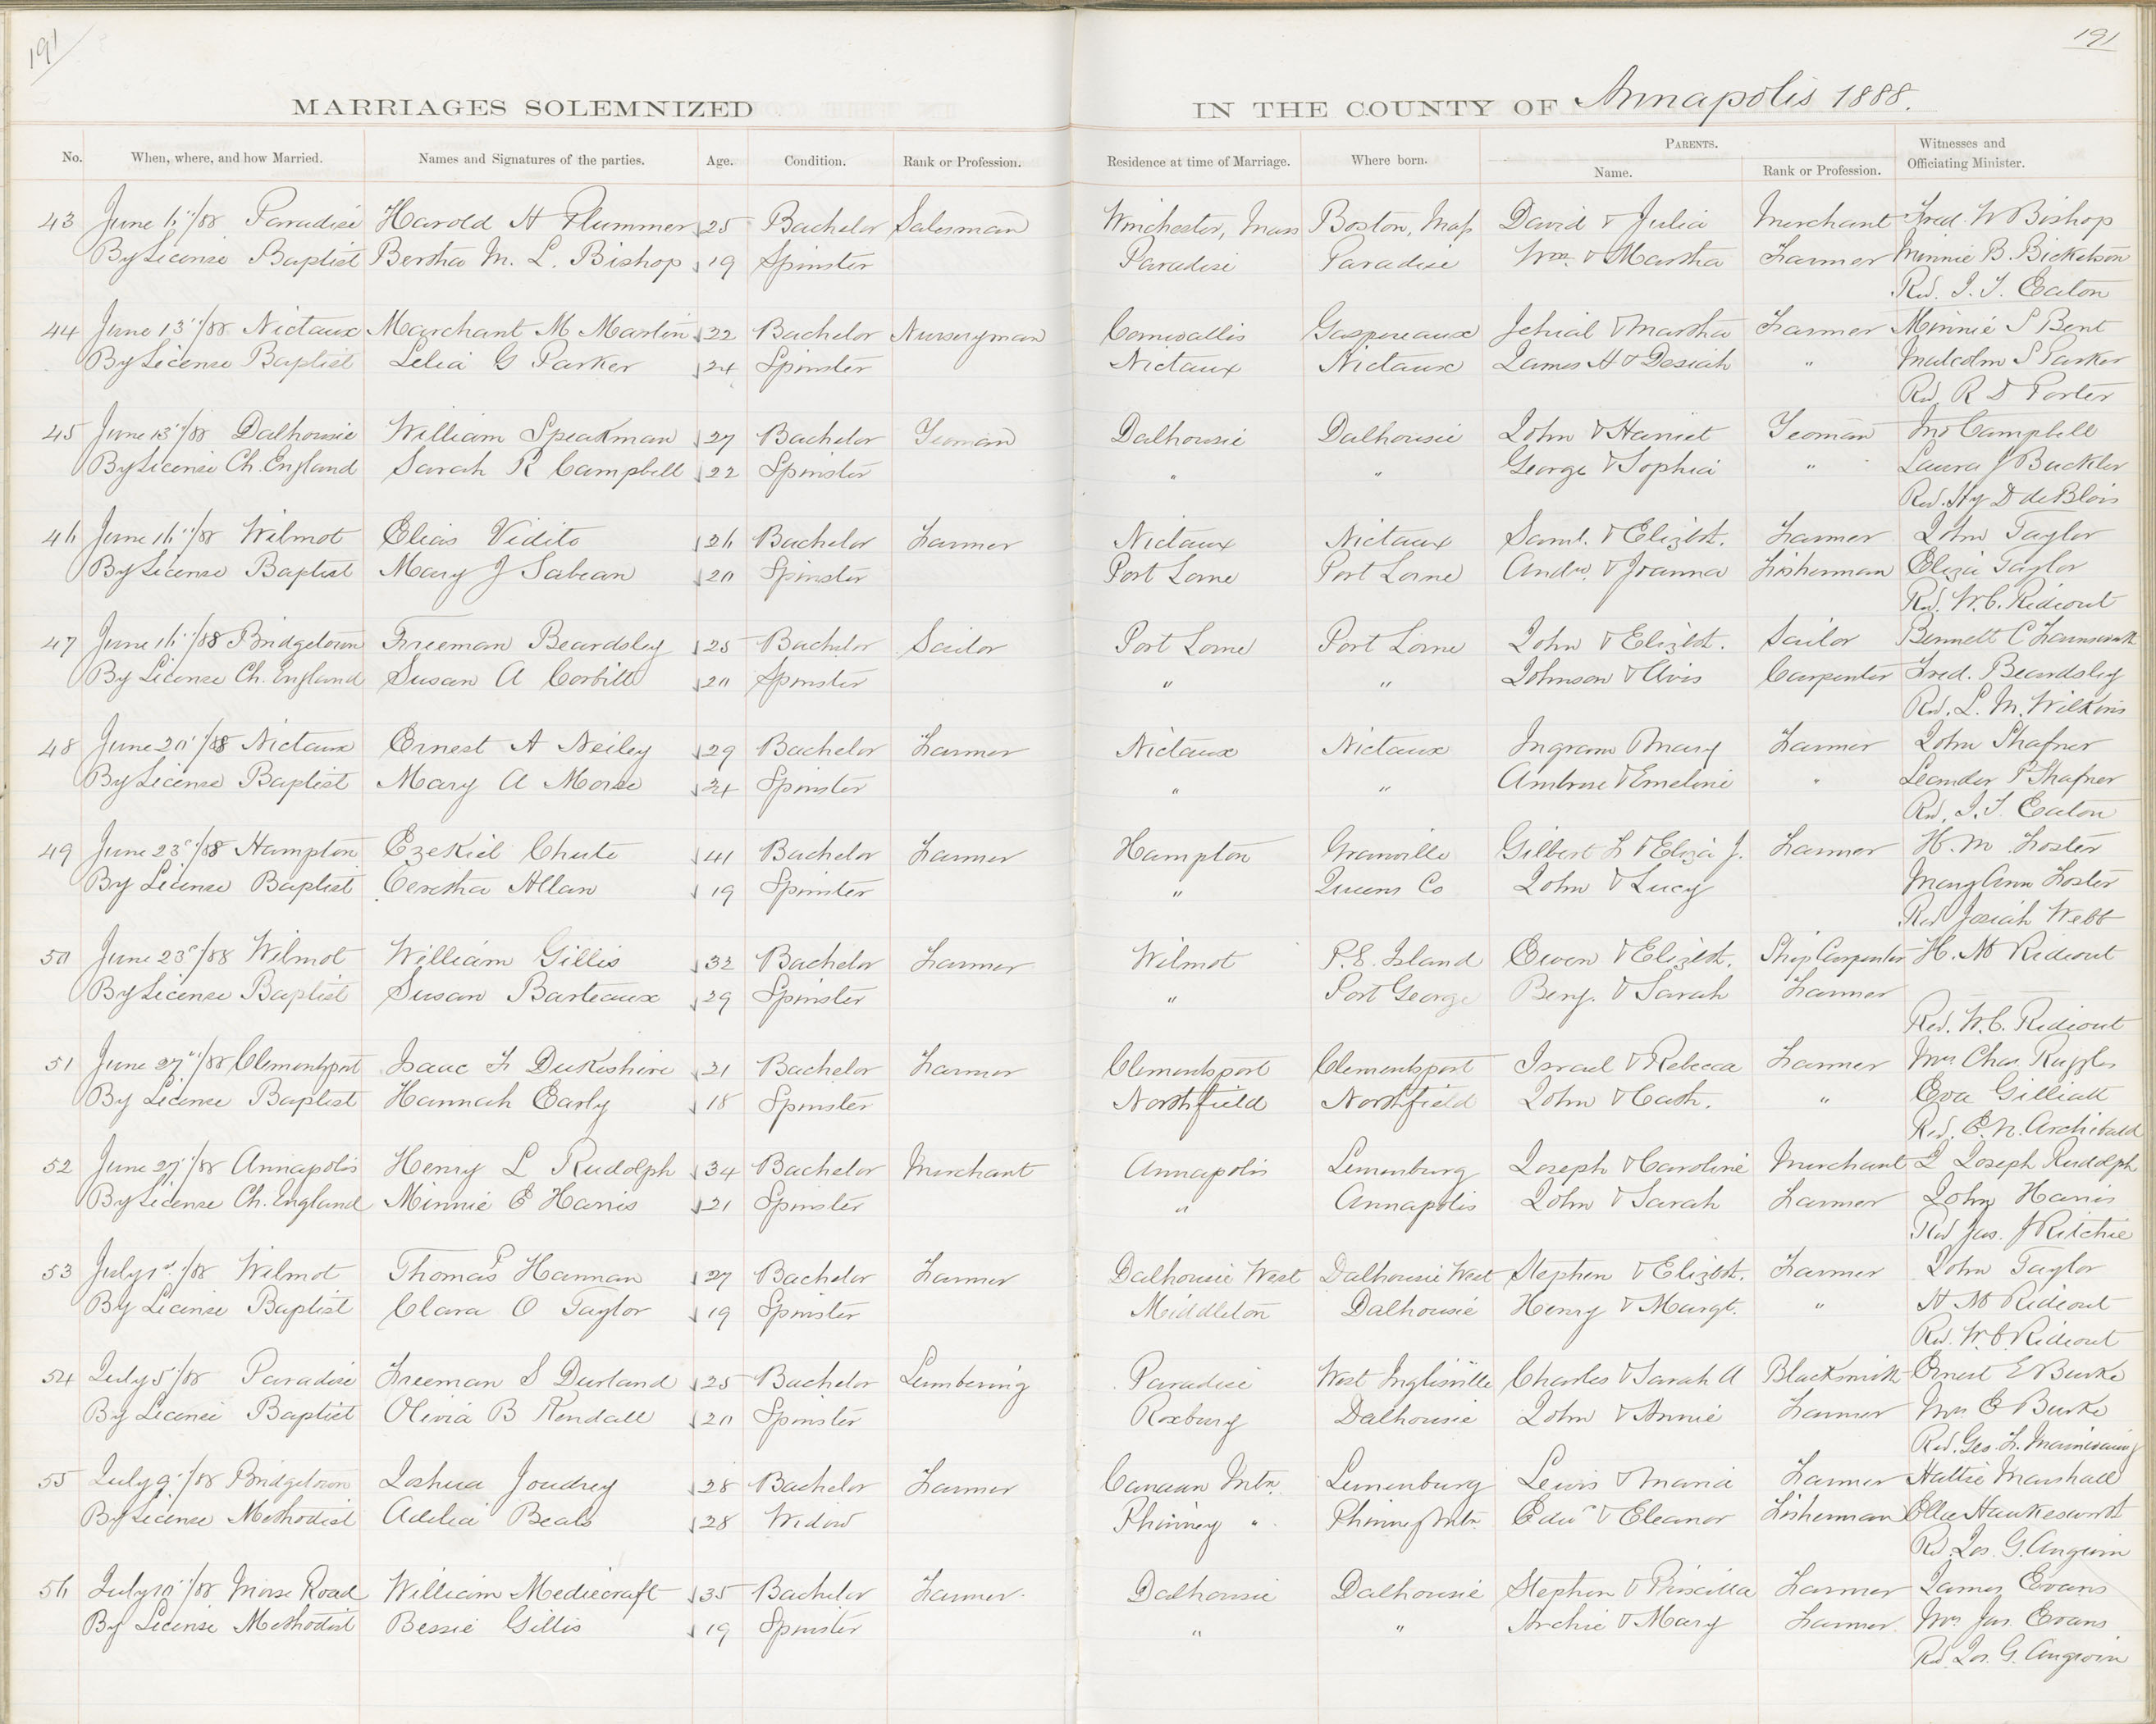 191
191
MARRIAGES SOLEMNIZED IN THE COUNTY OF Annapolis 1888.
No. When, where, and how Married. Names and Signatures of the parties. Age. Condition. Rank or Profession. Residence at time of Marriage. Where born. PARENTS. Name. Rank or Profession. Witnesses and Officiating Minister.
43 June 6"/88 Paradise Harold H Plummer 25 Bachelor Salesman Winchester, Mass Boston, Mass David & Julia Merchant Fred. W Bishop
By License Baptist Bertha M. L. Bishop 19 Spinster Paradise Paradise Wm. & Martha Farmer Minnie B. Bickelson
Rev. J. T. Eaton
44 June 13"/88 Nictaux Marchant M Martin 22 Bachelor Nurseryman Cornwallis Gaspereaux Jehial & Martha Farmer Minnie S Bent
By License Baptist Lelia G Parker 24 Spinster Nictaux Nictaux James H & Desiah " Malcolm S Parker
Rev. R D Porter
45 June 13"/88 Dalhousie William Speakman 27 Bachelor Yeoman Dalhousie Dalhousie John & Harriet Yeoman Jno Campbell
By License Ch. England Sarah R Campbell 22 Spinster " " George & Sophia " Laura J Buckler
Rev. Hy D de Blois
46 June 16"/88 Wilmot Elias Vidito 26 Bachelor Farmer Nictaux Nictaux Saml. & Elizbt. Farmer John Taylor
By License Baptist Mary J Sabean 20 Spinster Port Lorne Port Lorne Andw. & Joanna Fisherman Eliza Taylor
Rev. W. C. Rideout
47 June 16"/88 Bridgetown Freeman Beardsley 25 Bachelor Sailor Port Lorne Port Lorne John & Elizbt. Sailor Bennett C
By License Ch. England Susan A Corbitt 20 Spinster " " Johnson & Avis Carpenter Fred. Beardsley
Rev. L. M. Wilkins
48 June 20"/88 Nictaux Ernest A Neiley 29 Bachelor Farmer Nictaux Nictaux Ingram & Mary Farmer John Shafner
By License Baptist Mary A Morse 24 Spinster " " Ambrose & Emeline " Leander P Shafner
Rev. J. T. Eaton
49 June 23d/88 Hampton Ezekiel Chute 41 Bachelor Farmer Hampton Granville Gilbert F & Eliza J. Farmer H. M Foster
By License Baptist Ceretha Allan 19 Spinster " Queens Co John & Lucy Mary Ann Foster
Rev Josiah Webb
50 June 23d/88 Wilmot William Gillis 32 Bachelor Farmer Wilmot P. E. Island Ewen & Elizbt. Ship Carpenter H. M Rideout
By License Baptist Susan Barteaux 29 Spinster " Port George Benj. & Sarah Farmer
Rev. W. C. Rideout
51 June 27"/88 Clementsport Isaac F Dukeshire 21 Bachelor Farmer Clementsport Clementsport Israel & Rebecca Farmer Mrs Chas. Ruggles
By License Baptist Hannah Early 18 Spinster Northfield Northfield John & Cath. " Eva Gilliatt
Rev. E. N. Archibald
52 June 27"/88 Annapolis Henry L Rudolph 34 Bachelor Merchant Annapolis Lunenburg Joseph & Caroline Merchant J Joseph Rudolph
By License Ch. England Minnie E Harris 21 Spinster " Annapolis John & Sarah Farmer John Harris
Rev Jas. J Ritchie
53 July 1st/88 Wilmot Thomas P Hannan 27 Bachelor Farmer Dalhousie West Dalhousie West Stephen & Elizbt. Farmer John Taylor
By License Baptist Clara O Taylor 19 Spinster Middleton Dalhousie Henry & Margt. " H M Rideout
Rev. W. C Rideout
54 July 5"/88 Paradise Freeman S Durland 25 Bachelor Lumbering Paradise West Inglisville Charles & Sarah A Blacksmith Ernest E Burke
By License Baptist Olivia B Kendall 20 Spinster Roxbury Dalhousie John & Annie Farmer Mrs E Burke
Rev. Geo. F.
55 July 9"/88 Bridgetown Joshua Joudrey 28 Bachelor Farmer Canaan Mtn. Lunenburg Lewis & Maria Farmer Hattie Marshall
By License Methodist Adelia Beals 28 Widow Phinney " Phinney Mtn Edwd & Eleanor Fisherman Ella Hawkesworth
Rev. Jos. G. Angwin
56 July 10"/88 Morse Road William Mediecraft 35 Bachelor Farmer Dalhousie Dalhousie Stephen & Priscilla Farmer James Evans
By License Methodist Bessie Gillis 19 Spinster " " Archie & Mary Farmer Mrs Jas. Evans
Rev. Jos. G. Angwin